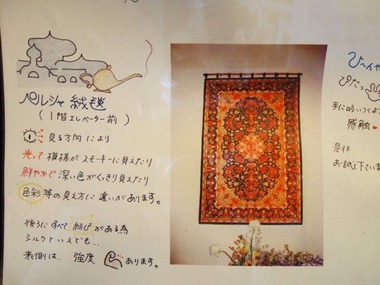 ペルシャ絨毯
(1階エレベーター前)
見る方向により
光って模様がスモーキーに見えたり
鮮やかで深い色がくっきり見えたり
色彩等の見え方に違いがあります。
後ろにすべて結びがある為
シルクといえども…
末側は、強度 あります。
ぴたっ
手に吸いつくよう
感触
是非
お試し下さいま